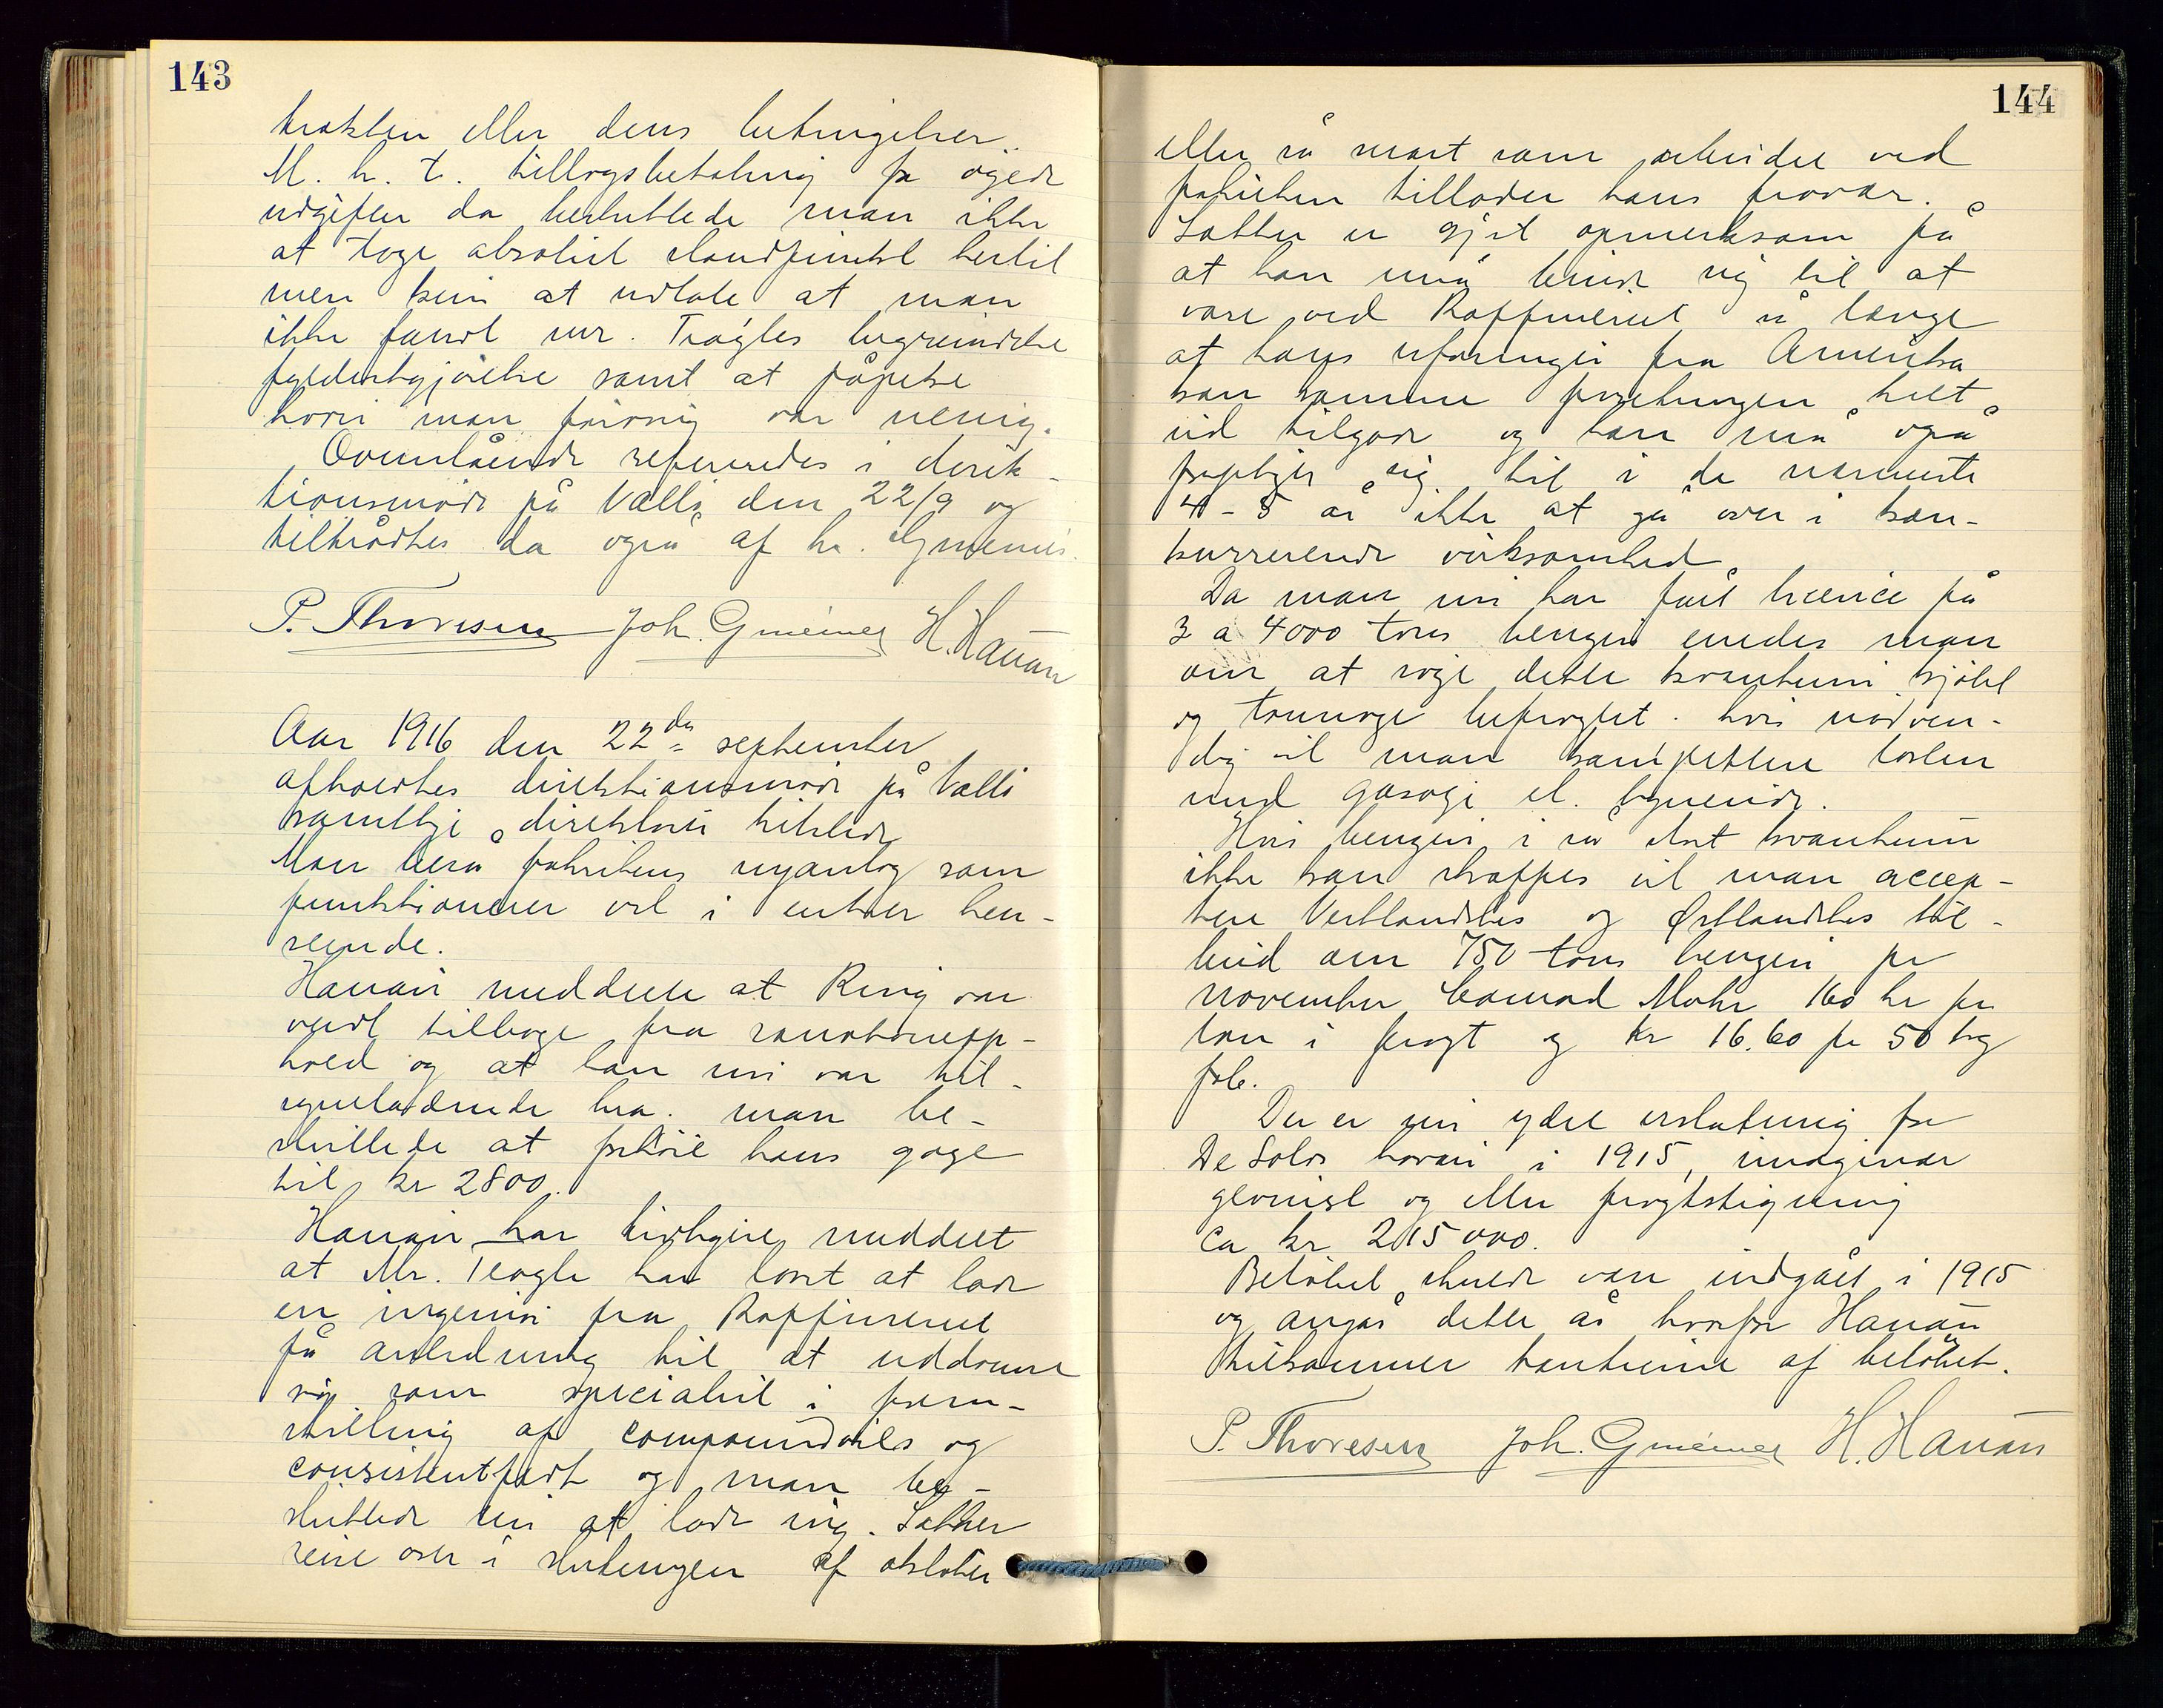 143
trakten eller dens betingelser.
M. h. t. tillægsbetaling for øgede
udgifter da besluttede man ikke
at tage absolut standpunkt hertil
men kun at udtale at man
ikke fandt mr. Teagles begrundelse
fyldestgjörelse samt at påpeke
hvori man forøvrig var uenig.
Ovenstående refereredes i direk-
tionsmöde på Vallö den 22/9 og
tiltrådtes da også af hr. Gmeiner.
P. Thoresen Joh. Gmeiner H. Hanan
Aar 1916 den 22de september
afholdtes direktionsmöde på Vallö
samtlige direktører tilstede
Man beså fabrikens nyanlæg som
funktionerer vel i enhver hen-
seende.
Hanan meddelte at Ring var
vendt tilbage fra sanatorieop-
hold og at han nu var til-
syneladende bra. man be-
sluttede at forhöie hans gage
til kr 2800.
Hanan har tidligere meddelt
at Mr. Teagle har lovet at lade
en ingeniör fra Raffineriet
få anledning til at uddanne
sig som specialist i frem-
stilling af compoundoils og
consistentfedt og man be-
sluttede nu at lade ing. Sæther
reise over i slutningen af oktober
144
eller så snart som arbeidet ved
fabriken tillader hans fravær.
Sæther er gjort opmerksom på
at han må binde sig til at
være ved Raffineriet så længe
at hans erfaringer fra Amerika
kan komme forretningen helt
ud tilgode og han må også
forpligte sig til i de nærmeste
4-5 år ikke at gå over i kon-
kurrerende virksomhed.
Da man nu har fået licence på
3 a 4000 tons bengin enedes man
om at söge dette kvantum kjöbt
og tonnage befragtet. hvis nödven-
dig vil man komplettere lasten
med gasolje el. lignende.
Hvis bengin i så stort kvantum
ikke kan skaffes vil man accep-
tere Vestlandskes og Østlandskes til-
bud om 750 tons bengin pr
november Conrad Mohr 160 kr pr
ton i fragt og kr 16.60 pr 50 kg
fob.
Der er nu ydet erstatning for
De Solos havari i 1915, imaginær
gevinst og eller fragtstigning
ca kr 215000.
Belöbet skulde være indgået i 1915
og angår dette år hvorfor Hanan
tilkommer tantieme af belöbet.
P. Thoresen Joh. Gmeiner H. Hanan